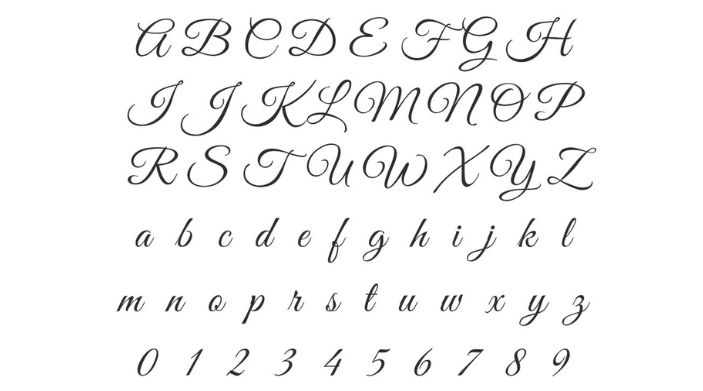 A B C D E F G H
I J K L M N O P
R S T U W X Y Z
a b c d e f g h i j k l
m n o p r s t u w x y z
0 1 2 3 4 5 6 7 8 9